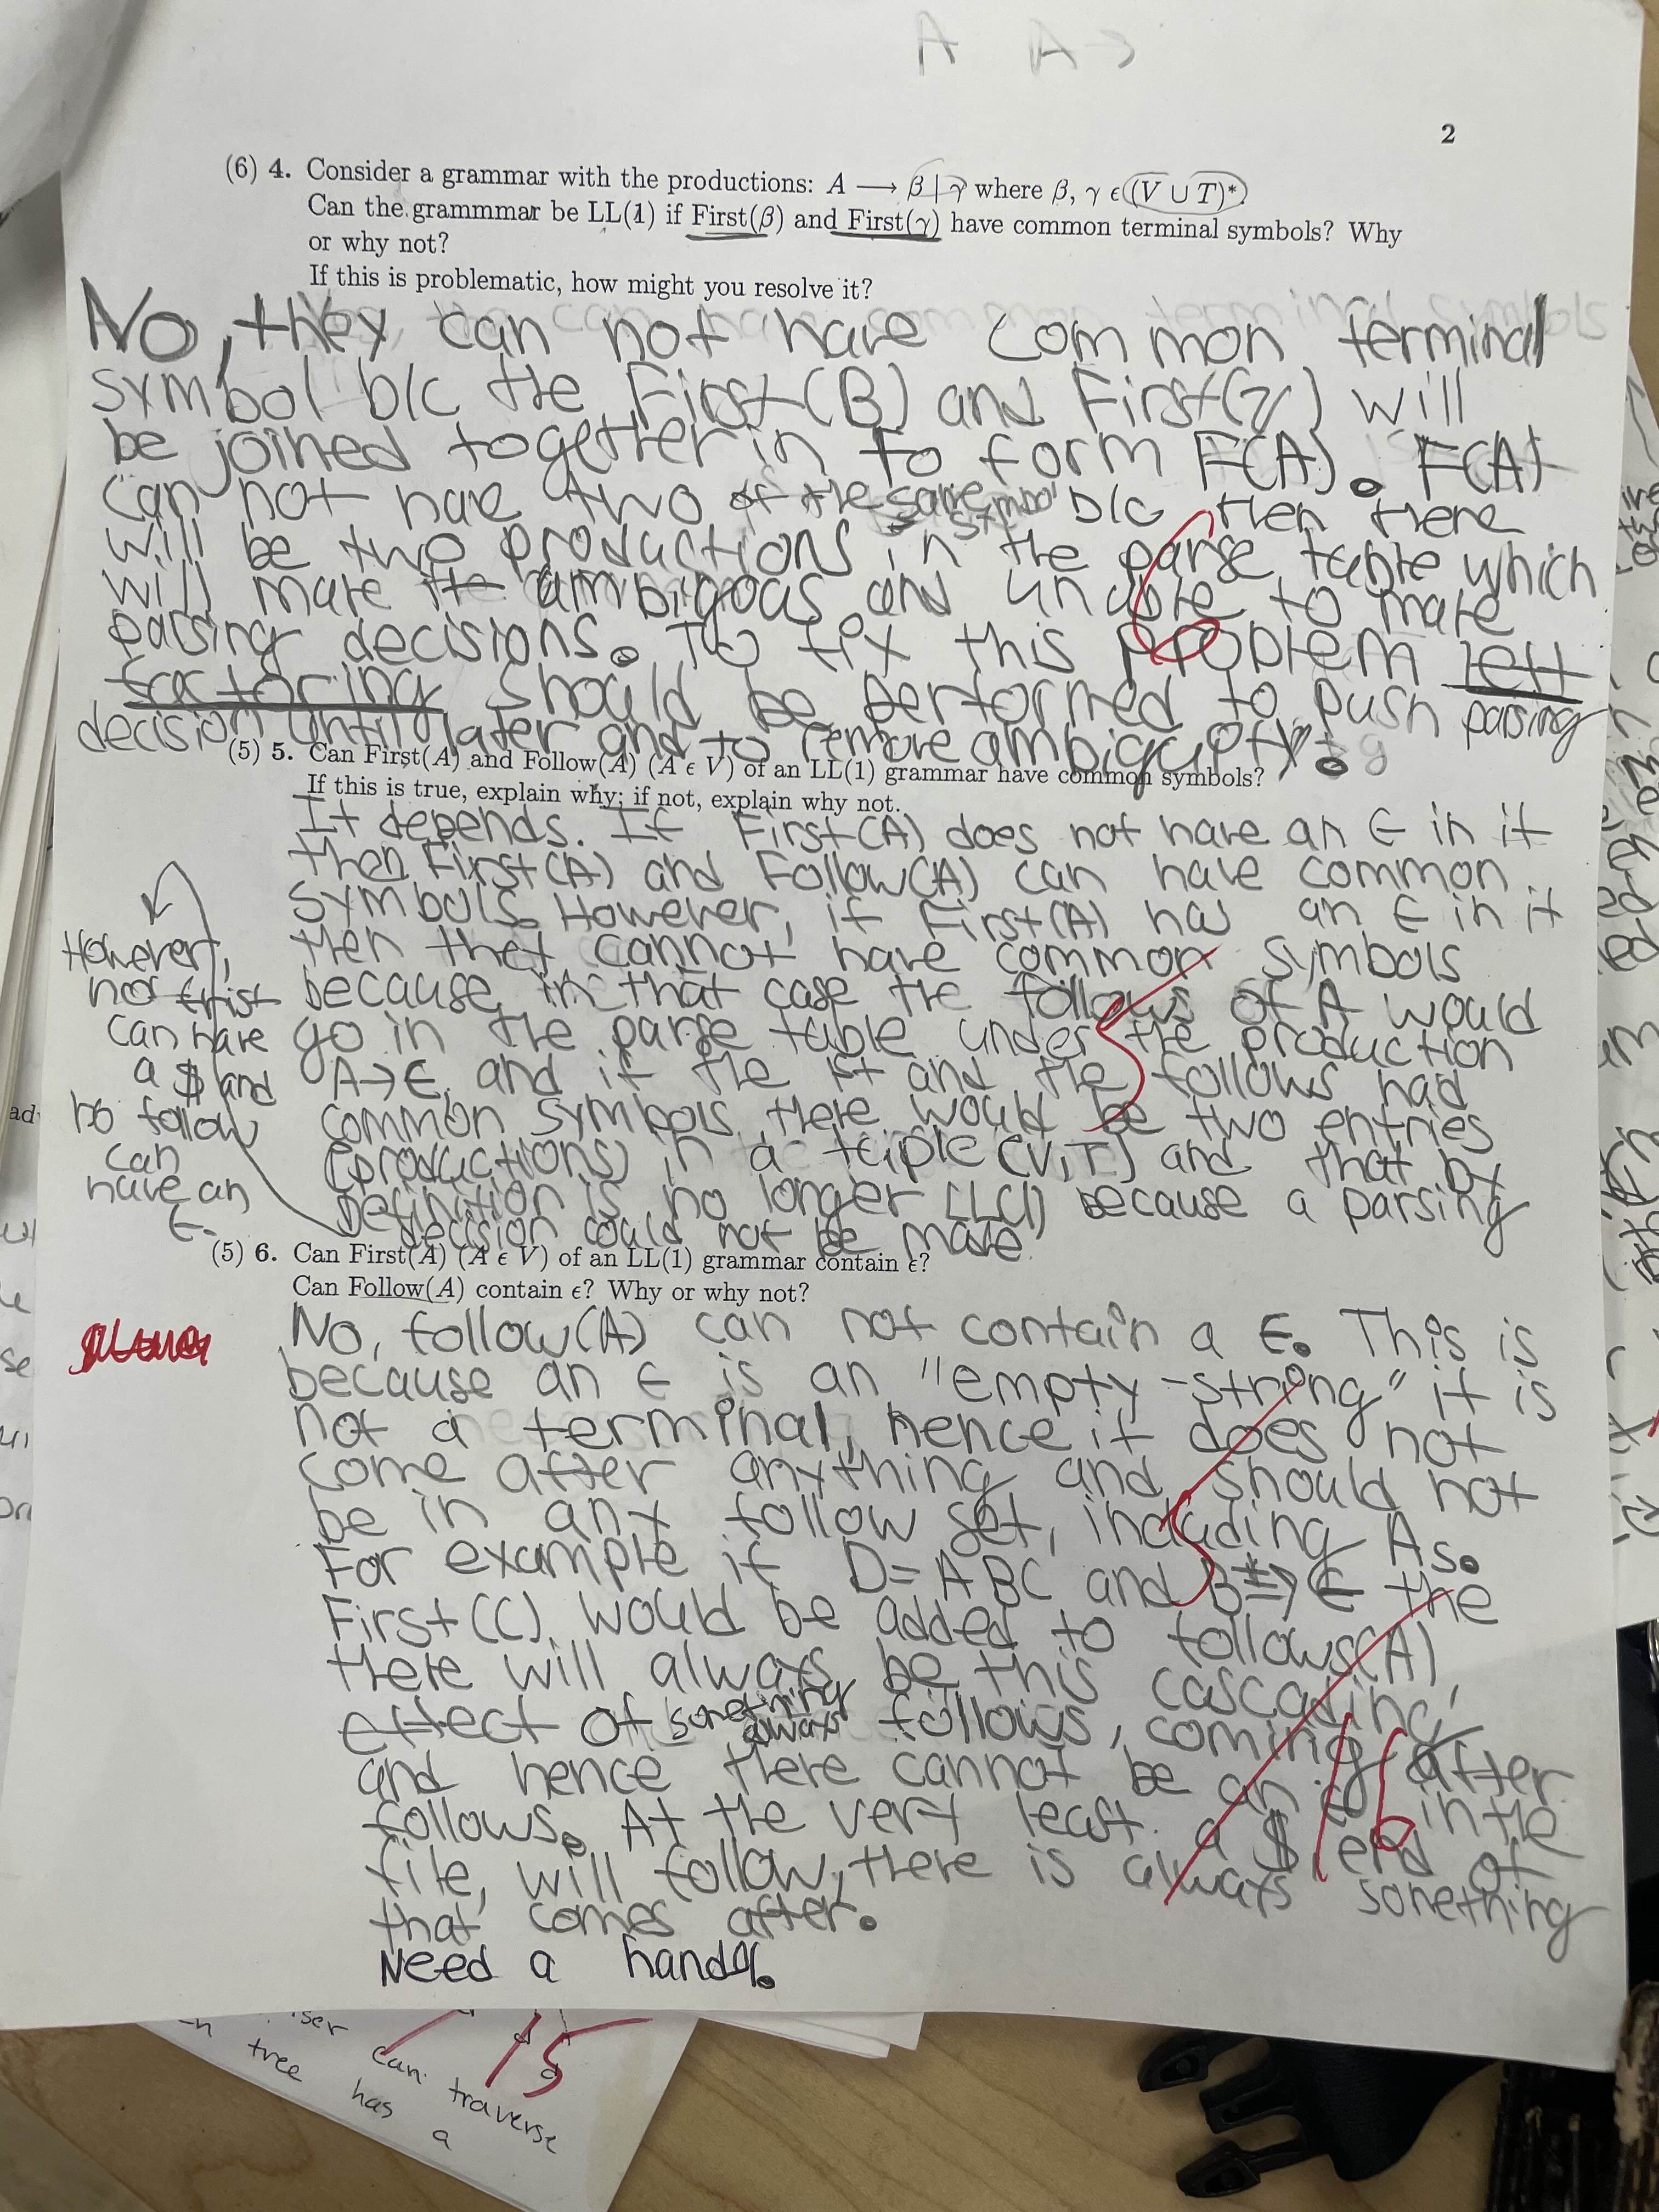 A A →
2
(6) 4. Consider a grammar with the productions: A ⟶ β | γ where β, γ ϵ (V ∪ T)*.
Can the grammmar be LL(1) if First(β) and First(γ) have common terminal symbols? Why
or why not?
If this is problematic, how might you resolve it?
No, they can not have common terminal
symbol b/c the First(B) and First(γ) will
be joined together in to form F(A). F(A)
can not have two of the same symbol b/c then there
will be two productions in the parse table which
will make it ambigous and unable to make
parsing decisions. To fix this problem left
factoring should be performed to push parsing
decision until later and to remove ambiguity.
6
(5) 5. Can First(A) and Follow(A) (A ϵ V) of an LL(1) grammar have common symbols?
If this is true, explain why; if not, explain why not.
It depends. If First(A) does not have an ϵ in it
then First(A) and Follow(A) can have common
symbols. However, if First(A) has an ϵ in it
then they cannot have common symbols
because in that case the follows of A would
go in the parse table under the production
A→ϵ, and if the 1st and the follows had
common symbols there would be two entries
(productions) in a table [V,T] and that by
definition is no longer LL(1) because a parsing
decision could not be made
However,
no first
can have
a $ and
no follow
can
have an
ϵ.
5
(5) 6. Can First(A) (A ϵ V) of an LL(1) grammar contain ϵ?
Can Follow(A) contain ϵ? Why or why not?
No, follow(A) can not contain a ϵ. This is
because an ϵ is an "empty-string" it is
not a terminal, hence it does not
come after anything and should not
be in any follow set, including As.
For example if D = ABC and B *⇒ ϵ the
First(C) would be added to follows(A)
there will always be this cascading
effect of something always follows, coming after
and hence there cannot be an ϵ in the
follows. At the very least a $, end of
file, will follow, there is always something
that comes after.
Need a hand
5
/16
/15
can traverse
tree has a